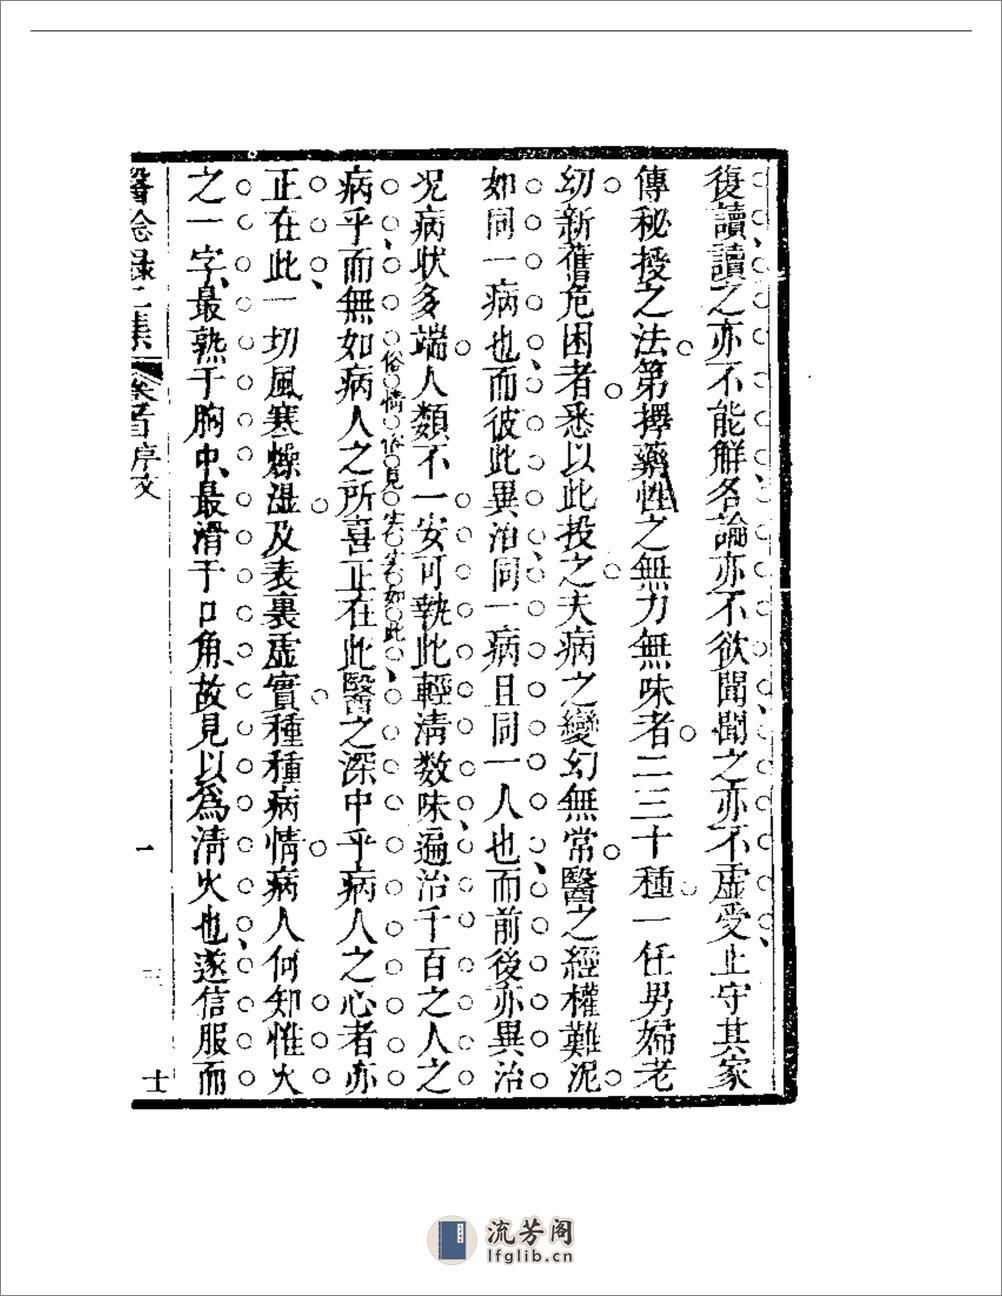 復讀讀之亦不能解各論亦不欲聞聞之亦不虛受止守其家
傳秘授之法第擇藥性之無力無味者二三十種一任男婦老
幼新舊危困者悉以此投之夫病之變幻無常醫之經權難泥
如同一病也而彼此異治同一病且同一人也而前後亦異治
況病狀多端人類不一安可執此輕清数味遍治千百之人之
俗情俗見
如此
病乎而無如病人之所喜正在此醫之深中乎病人之心者亦
正在此一切風寒燥湿及表裏虛實種種病情病人何知惟火
之一字、最熟于胸中、最滑于口角、故見以為清火也遂信服而
醫恴錄二集
卷首序文
一
三
士
流芳阁
lfglib.cn